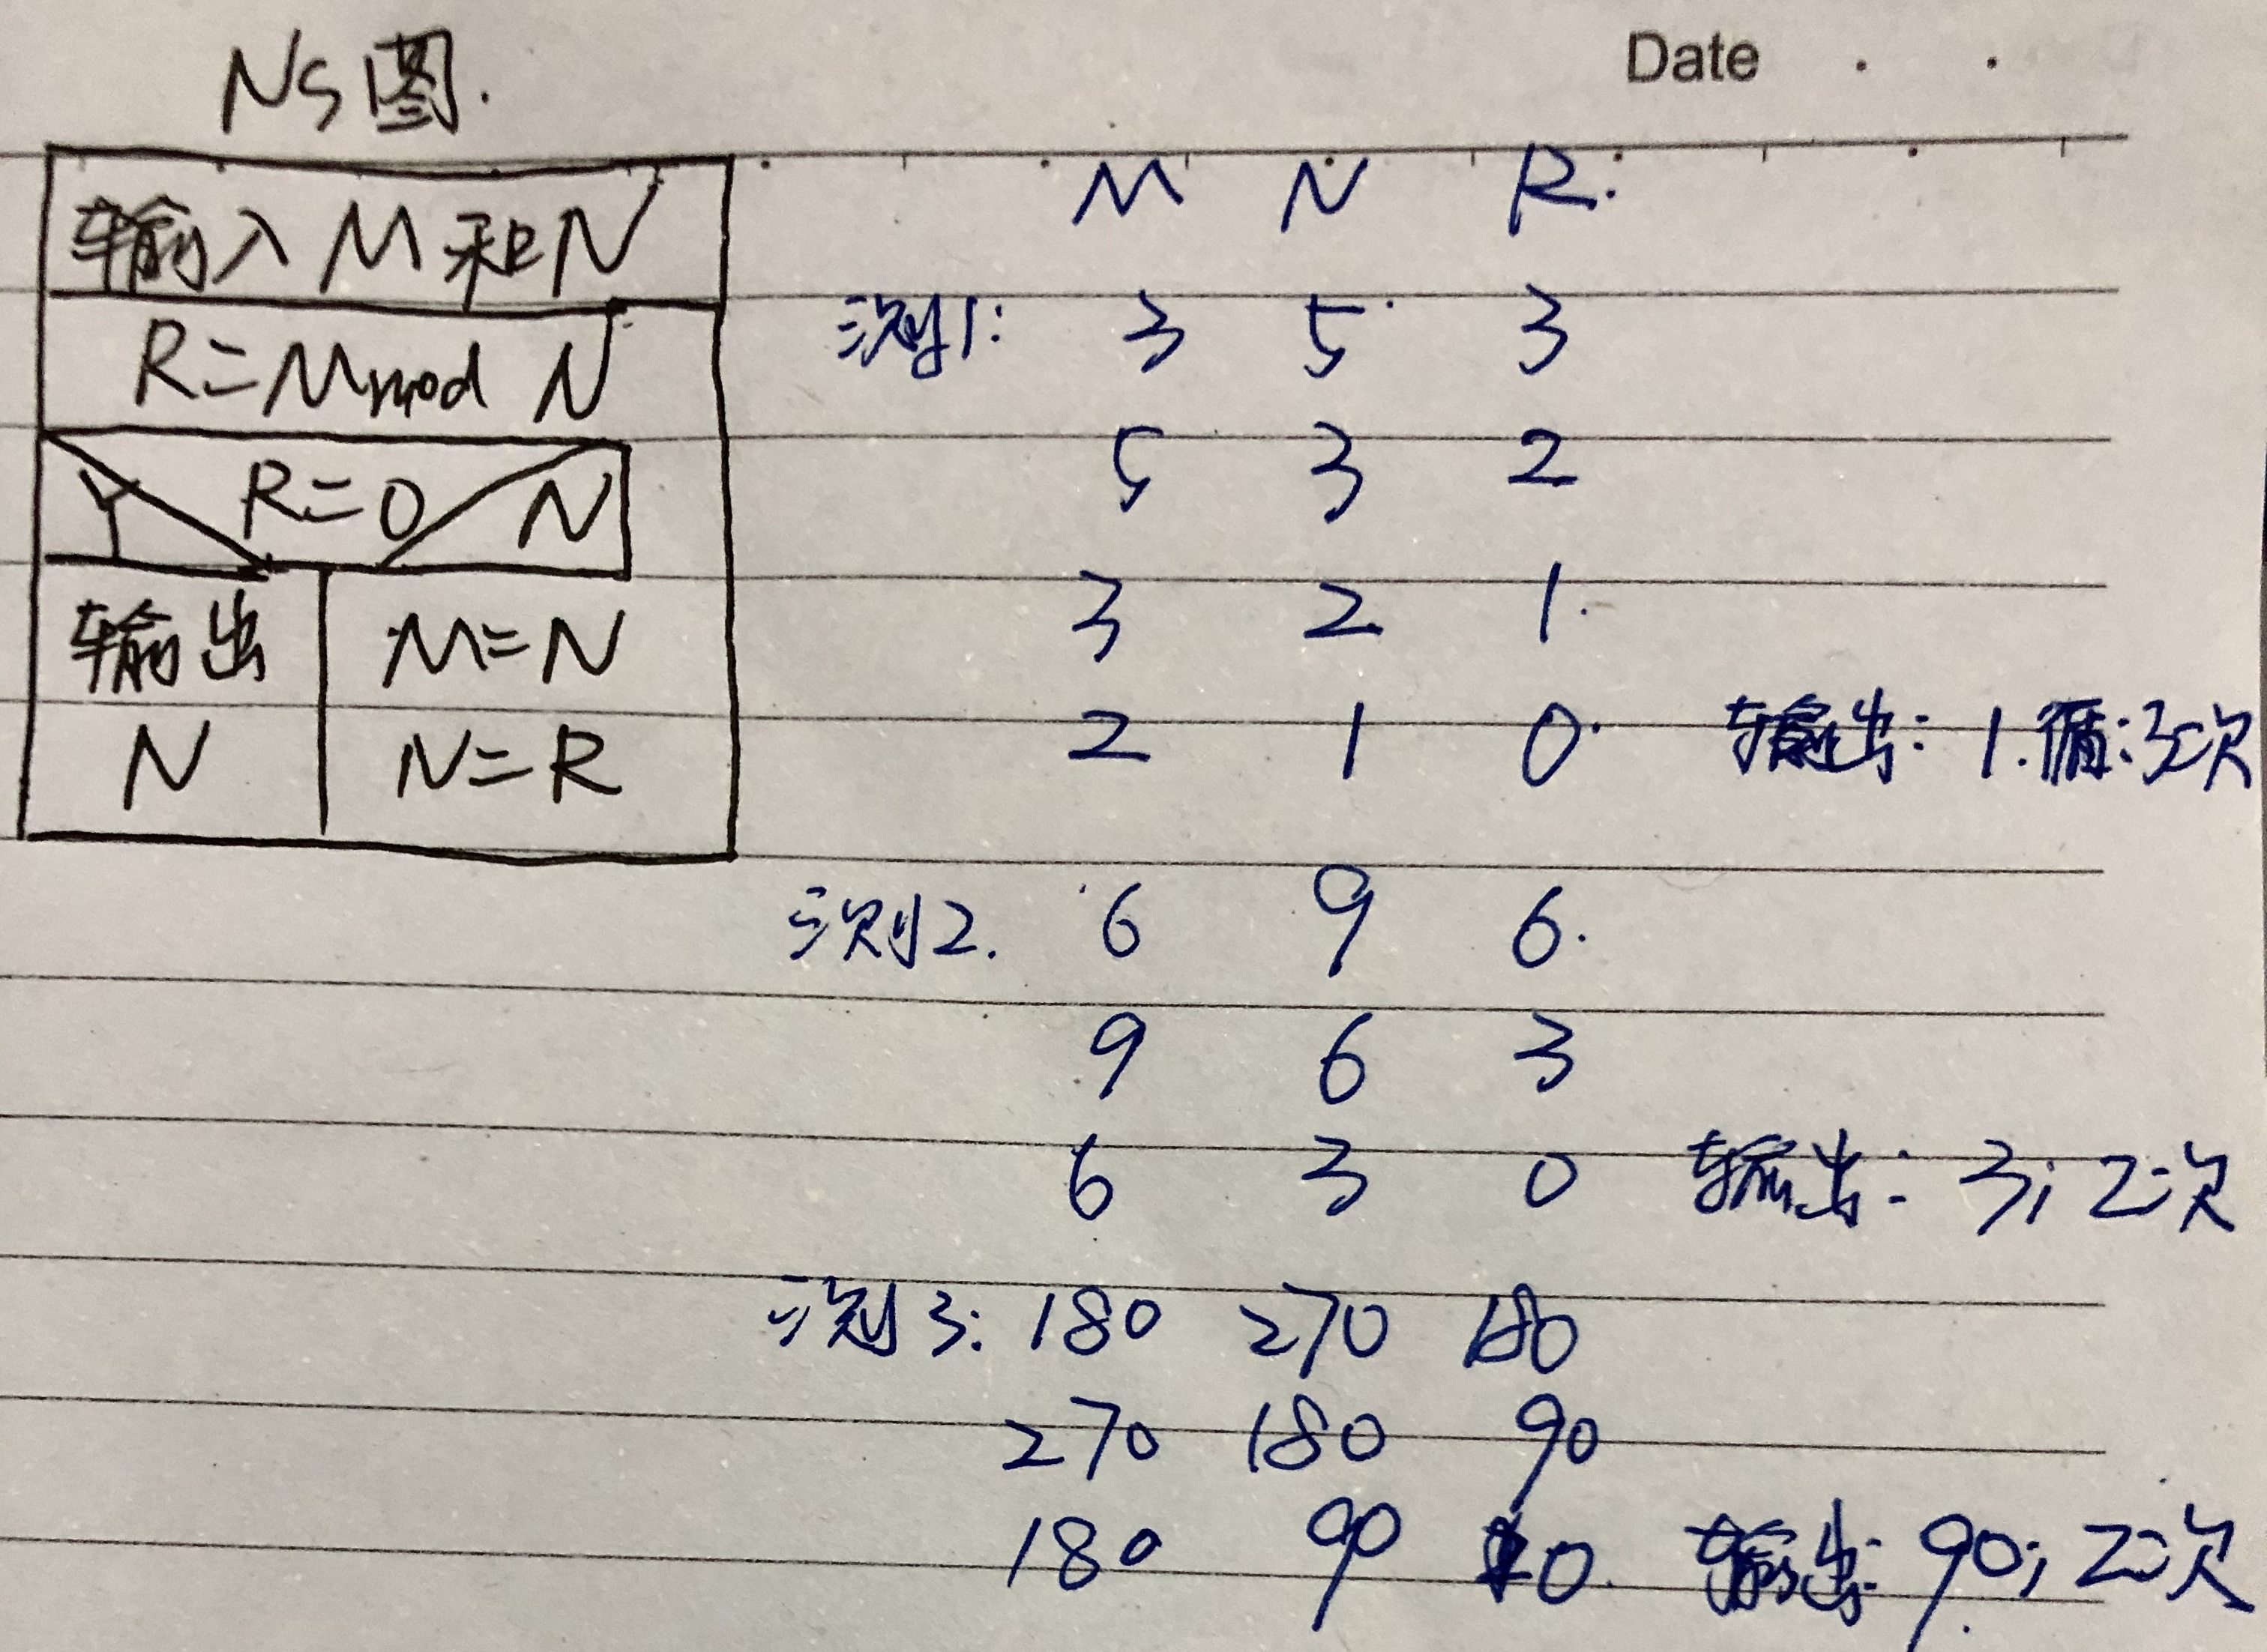 NS图.
Date . .
输入M和N
R=Mmod N
Y R=0 N
输出 M=N
N N=R
M N R.
测1: 3 5 3
5 3 2
3 2 1.
2 1 0 输出: 1.循:3次
测2. 6 9 6.
9 6 3
6 3 0 输出: 3; 2次
测3: 180 270 180
270 180 90
180 90 0. 输出: 90; 2次